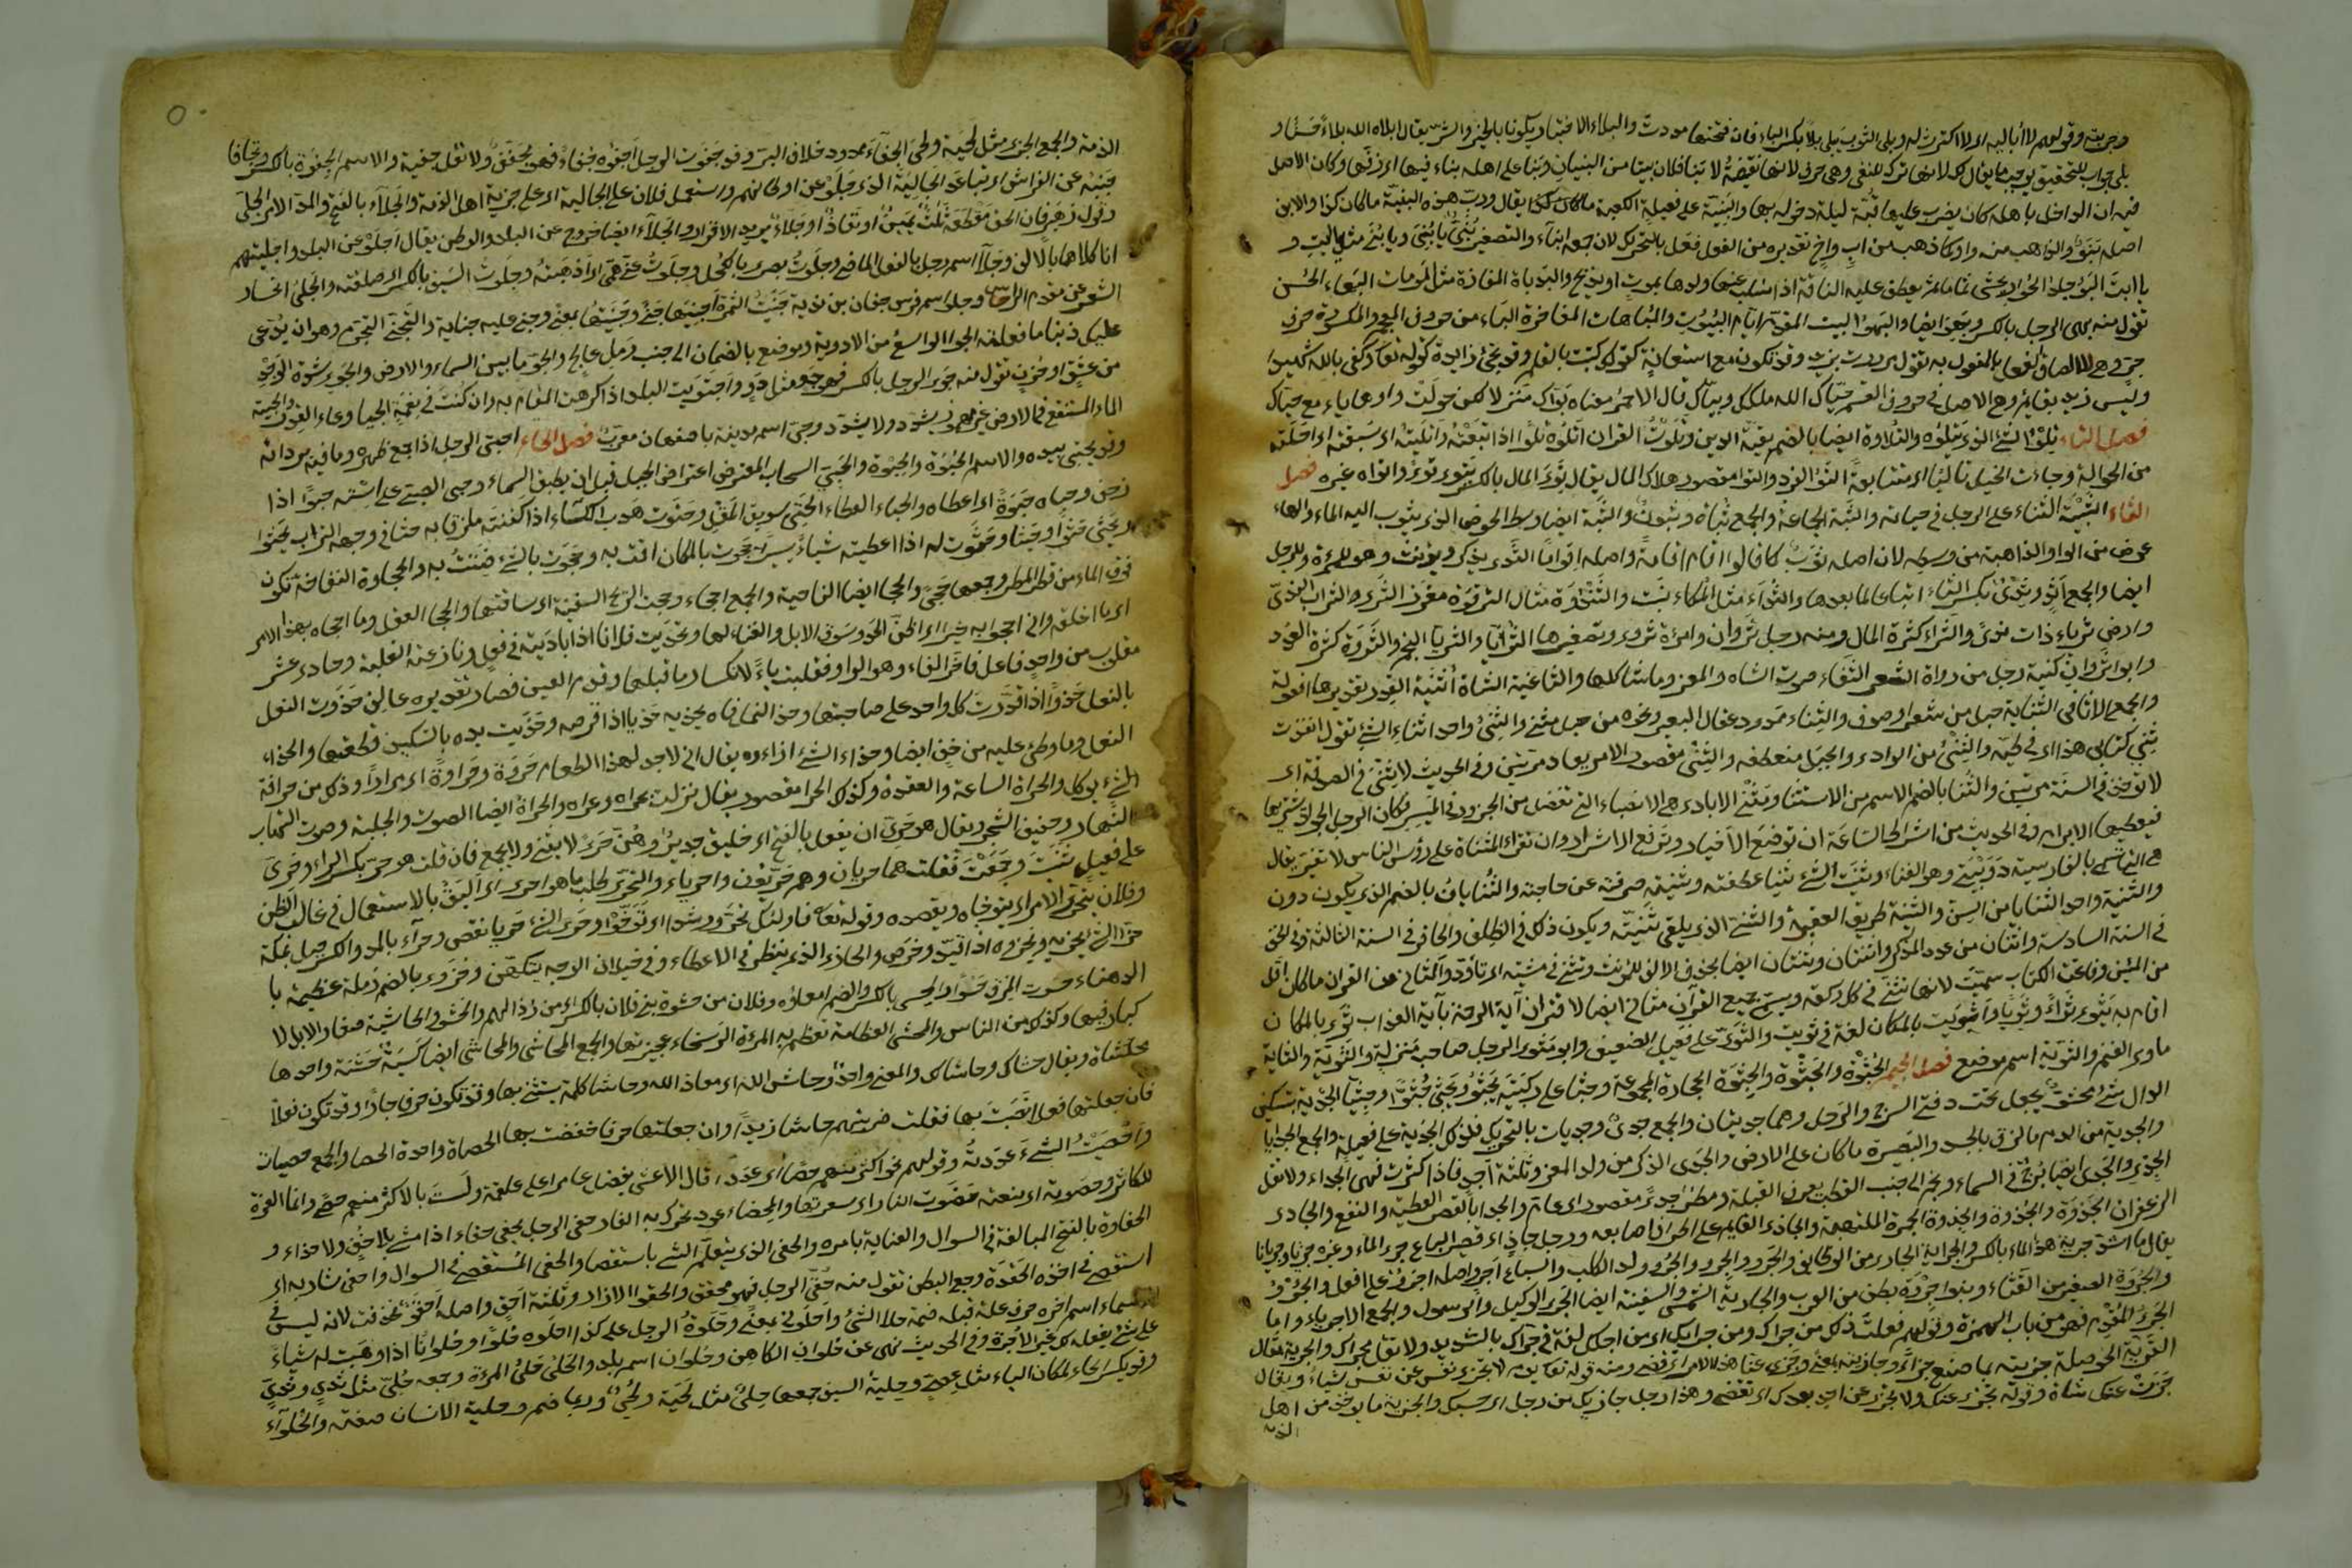 وجربته وقولهم لا أباليه اى لا اكترث له وبلى الثوب يبلى بلا بكسر الباء فان فتحتها مددت والبلاء الاختبار ويكون بالخير والشر يقال ابلاه الله بلاء حسنا و
بلى جواب للتحقيق يوجب ما يقال لك لانها ترك للنفى وهى حرف لانها نقيضة لا بنا فلان بيتا من البنيان وبنا على اهله بناء فيها اى زفها وكان الاصل
فيه ان الداخل باهله كان يضرب عليها قبة ليلة دخوله بها والبنية على فعيلة الكعبة يقال ورب هذه البنية ما كان كذا والابن
اصله بنو والذاهب منه واو كما ذهب من اب واخ تقديره من الفعل فعل بالتحريك لان جمعه ابناء والتصغير بنى يا بنى ويا بنى مثل يا ابت و
يا ابت البو جلد الحوار يحشى ثماما ثم يعطف عليه الناقة اذا سلب عنها ولدها بموت او بذبح والبوباة المفازة مثل الموماة البهاء الحسن
تقول منه بهى الرجل بالكسر وبهو ايضا والبهو البيت المقدم امام البيوت والمباهات المفاخرة الباء من حروف المعجم والمكسورة حرف
جر وهى لالصاق الفعل بالمفعول به تقول مررت بزيد وقد تكون مع استعانة كقولك كتبت بالقلم وقد تجئ زايدة كقوله تعالى وكفى بالله شهيدا
وليس زيد بقائم وهى الاصل فى حروف القسم حياك الله ملكك وبياك قال الاحمر معناه بوأك منزلا لكن حولت واوها ياء مع حياك
فصل التاء تلو الشئ الذى يتلوه والتلاوة ايضا بالضم بقية الدين وتلوت القران اتلوه تلوا اذا تبعته واتليته اى سبقته اى احلته
من الحوالة وجاءت الخيل تتاليا اى متتابعة التو الفرد والتوا مقصور هلاك المال يقال توى المال بالكسر يتوى توى واتواه غيره فصل
الثاء الثبية الثناء على الرجل فى حياته والثبة الجماعة والجمع ثبات وثبون والثبة ايضا وسط الحوض الذى يثوب اليه الماء والهاء
عوض من الواو الذاهبة من وسطه لان اصله ثوب كما قالوا اقام اقامة واصله اقواما الثدى يذكر ويؤنث وهو للمرأة والرجل
ايضا والجمع اثد وثدى بكسر الثاء اتباعا لما بعدها والثداء مثل المكاء نبت والثندوة مثال الترقوة مغرز الثدى والثراب الندى
وارض ثرياء ذات ندى والثراء كثرة المال ومنه رجل ثروان وامرأة ثروى وتصغيرها ثريا والثريا النجم والثروة كثرة العدد
وابو ثروان كنية رجل من رواة الشعر الثغاء صوت الشاه والمعز وما شاكلها والثاغية الشاة أثفية القدر تقديرها افعولة
والجمع الاثافى الثناية حبل من شعر او صوف والثناء ممدود عقال البعير ونحوه من حبل مثنى والثنى واحد اثناء الشئ تقول انفذت
ثنى كتابى هذا اى فى طيه والثنى من الوادى والجبل منعطفه والثنى مقصور الامر يعاد مرتين وفى الحديث لا ثنى فى الصدقة اى
لا توخذ فى السنة مرتين والثنيا بالضم الاسم من الاستثنا ومثنى الايادى هى الانصباء التى تفضل من الجزور فى الميسر فكان الرجل الجواد يشتريها
فيعطيها الابرام وفى الحديث من اشراط الساعة ان توضع الاخيار وترفع الاشرار وان تقرا المثناة على رؤس الناس لا تغير يقال
هى التى تسمى بالفارسية دوبيتى وهو الغناء وثنيت الشئ ثنيا عطفته وثنيته صرفته عن حاجته والثنايان بالضم الذى يكون دون
والثنية واحد الثنايا من السن والثنية طريق العقبة والثنى الذى يلقى ثنيته ويكون ذلك فى الظلف والحافر فى السنة الثالثة وفى الخف
فى السنة السادسة واثنان من عدد المذكر واثنتان وثنتان ايضا بحذف الالف للمؤنث وتثنى فى مشيته اى تاود والمثانى من القران ما كان اقل
من المئين وفاتحة الكتاب سميت لانها تثنى فى كل ركعة ويسمى جميع القرآن مثانى ايضا لاقتران آية الرحمة باية العذاب ثوى بالمكان
اقام به يثوى ثواء وثويا واثويت بالمكان لغة فى ثويت والثوى على فعيل الضيف وابو مثوى الرجل صاحب منزله والثوية والثاية
ماوى الغنم والثوية اسم موضع فصل الجيم الجثوة والجثوة والجثوة الحجارة المجموعة وجثا على ركبتيه يجثو ويجثى جثوا وجثيا الجدية بتسكين
الدال شئ محشو يجعل تحت دفتى السرج والرحل وهما جديتان والجمع جدى وجديات بالتحريك فكذلك الجدية على فعيلة والجمع الجدايا
والجدية من الدم ما لزق بالجسد والبصيرة ما كان على الارض والجدى الذكر من ولد المعز وثلثة اجد فاذا كثرت فهى الجداء ولا تقل
الجدى والجدى ايضا برج فى السماء ونجم الى جنب القطب يعرف القبلة ومطر جدى مقصور اى عام والجدا بالقصر العطية والنفع والجادى
الزعفران الجذوة والجذوة والجذوة الجمرة الملتهبة والجاذى القايم على اطراف اصابعه ورجل جاذ اى قصير الباع جرى الماء وغيره جريا وجريانا
يقال ما اشد جرية هذا الماء بالكسر والجراية الجارى من الوظايف والجرو والجرو والجرو ولد الكلب والسباع اجر واصله اجرو على افعل والجرو
والجروة الصغير من القثاء وبنوا جروة بطن من العرب والجارية الشمس والسفينة ايضا الجرى الوكيل والرسول والجمع الاجرياء واما
الجرى المقدم فهو من باب الهمزة وقولهم فعلت ذلك من جراك ومن جرائك اى من اجلك لغة فى جراك بالتشديد ولا تقل مجراك والجرية مثال
القرية الحوصلة جزيته بما صنع جزاء وجازيته بمعنى وجزى عنا هذا الامر اى قضى ومنه قوله تعالى يوم لا تجزى نفس عن نفس شيئا ويقال
جزت عنك شاة وقوله تجزى عنك ولا تجزى عن احد بعدك اى تقضى وهذا رجل جازيك من رجل اى حسبك والجزية ما يوخذ من اهل
الذمة
الذمة والجمع الجزى مثل لحية ولحى الجفاء ممدود خلاف البر وقد جفوت الرجل اجفوه جفاء فهو مجفو ولا تقل جفيته والاسم الجفوة بالكسر وتجافا
جنبه عن الفراش اى تباعد الجالية الذى جلوا عن اوطانهم واستعمل فلان على الجالية اى على جزية اهل الذمة والجلاء بالفتح والمد الامر الجلى
وقول زهير فان الحق مقطعه ثلث يمين او نفاذ او جلاء يريد الاقرار والجلاء ايضا الخروج عن البلد والوطن يقال اجلوا عن البلد واجليتهم
انا كلاهما بالالف وجلا اسم رجل بالفعل الماضى وجلوت بصرى بالكحل وجلوت عنى همى اى اذهبته وجلوت السيف بالكسر اى صقلته والجلى انحسار
الشعر عن مقدم الراس وجلوا اسم فرس خفاف بن ندبة جنيت الثمرة اجنيها جنى وجنيتها بمعنى وجنى عليه جناية والتجنى التجرم وهو ان يدعى
عليك ذنبا ما فعلته الجوا الواسع من الاودية وموضع بالضمان الى جنب رمل عالج والجو ما بين السماء والارض والجوى شدة الوجد
من عشق او حزن تقول منه جوى الرجل بالكسر فهو جو مثل دو واجتويت البلد اذا كرهت المقام به وان كنت فى نعمة الجيا وعاء القدر والجية
الماء المستنقع فى الارض غير مهموز يشدد ولا يشدد وجى اسم مدينة باصفهان معرب فصل الحاء احتبى الرجل اذا جمع ظهره وساقيه بردائه
وقد يحتبى بيديه والاسم الحبوة والحبوة والحبى السحاب المعترض اعتراض الجبل قبل ان يطبق السماء وحبى الصبى على استه حبوا اذا
زحف وحباه حبوة اى اعطاه والحباء العطاء الحتى سويق المقل وحتوت هدب الكساء اذا كففته ملزقا به حثا فى وجهه التراب يحثوا
ويحثى حثوا وحثيا وحثوت له اذا اعطيته شيا يسيرا حجوت بالمكان اقمت به وحجوت بالشئ ضننت به والحجاوة النفاخة تكون
فوق الماء من قطر المطر وجمعها حجى والحجا ايضا الناحية والجمع احجاء وحجت الريح السفينة اى ساقتها والحجا العقل وما احجاه بهذا الامر
اى ما اخلقه وانى احجو به خيرا اى اظن الحدو سوق الابل والغناء لها وتحديت فلانا اذا باديته فى فعل ونازعته الغلبة وحادى عشر
مقلوب من واحد فاعل فاخر الفاء وهو الواو فقلبت ياء لانكسار ما قبلها وقدم العين فصار تقديره عالف حذوت النعل
بالنعل حذوا اذا قدرت كل واحد على صاحبتها وحذا النعل فاه يحذيه حذيا اذا قرصه وحذيت يده بالسكين قطعتها والحذاء
النعل وما وطئ عليه من خف ايضا وحذاء الشئ ازاءه يقال انى لاجد لهذا الطعام حروة وحراوة اى حرارا وذلك من حرافة
شئ يوكل والحراة الساعة والعقوة وكذلك الحرا مقصور يقال نزلت بحراه وعراه والحراة ايضا الصوت والجلبة وصوت التهاب
النار وحفيف الشجر ويقال هو حرى ان يفعل بالفتح اى خليق جدير وهن حرى لا يثنى ولا يجمع فان قلت هو حر بكسر الراء وحرى
على فعيل ثنيت وجمعت فقلت هما حريان وهم حريون واحرياء والتحرى طلب ما هو احرى اى اليق بالاستعمال فى غالب الظن
وفلان يتحرى الامر اى يتوخاه ويقصده وقوله تعالى فاولئك تحروا رشدا اى توخوا وحرى الشئ حريا نقص وحراء بالمد والكسر جبل بمكة
حزا الشئ يحزيه ويحزوه اذا قدر وخرص والحازى الذى ينظر فى الاعضاء وفى خيلان الوجه يتكهن وحزوى بالضم رملة عظيمة با
الدهناء حسوت المرق حسوا والحسى بالكسر والضم امعاؤه وفلان من حشوة بنى فلان بالكسر اى من رذالهم والحشو الحاشية صغار الابل لا
كبار فيها وكذلك من الناس والمحشى العظامة تعظم به المرءة الرسحاء عجيزتها والجمع المحاشى والمحاشى ايضا اكسية خشنة واحدها
محشاة ويقال حشاك وحاشاك والمعنى واحد وحاش الله اى معاذ الله وحاشا كلمة يستثنى بها وقد تكون حرفا جارا وقد تكون فعلا
فان جعلتها فعلا نصبت بها فقلت ضربتهم حاشا زيدا وان جعلتها حرفا خفضت بها الحصاة واحدة الحصا والجمع حصيات
واحصيت الشئ عددته وقولهم نحن اكثر منهم حصا اى عددا قال الاعشى يفضل عامرا على علقمة ولست بالاكثر منهم حصى وانما العزة
للكاثر وحصوته اى منعته حضوت النار اى سعرتها والمحضاء عود تحرك به النار حفى الرجل يحفى حفاء اذا مشى بلا خف ولا حذاء و
الحفاوة بالفتح المبالغة فى السوال والعناية بامره والحفى الذى يتعلم الشئ باستقصا والحفى المستقصى فى السوال واحفى شاربه اى
استقصى فى اخذه الحقوة وجع البطن تقول منه حقى الرجل فهو محقو والحقو الازار وثلثة احق واصله احقو فحذفت لانه ليس فى
الاسماء اسم اخره حرف علة قبله ضمة حلا الشئ واحلولى بمعنى وحلوت الرجل على كذا احلوه حلوا وحلوانا اذا وهبت له شياء
على شئ يفعله لك غير الاجرة وفى الحديث نهى عن حلوان الكاهن وحلوان اسم بلد والحلى حلى المرءة وجمعه حلى مثل ثدى وثدى
وقد يكسر الحاء لمكان الياء مثل عصى وحلية السيف جمعها حلى مثل لحية ولحى وربما ضم وحلية الانسان صفته والحلواء